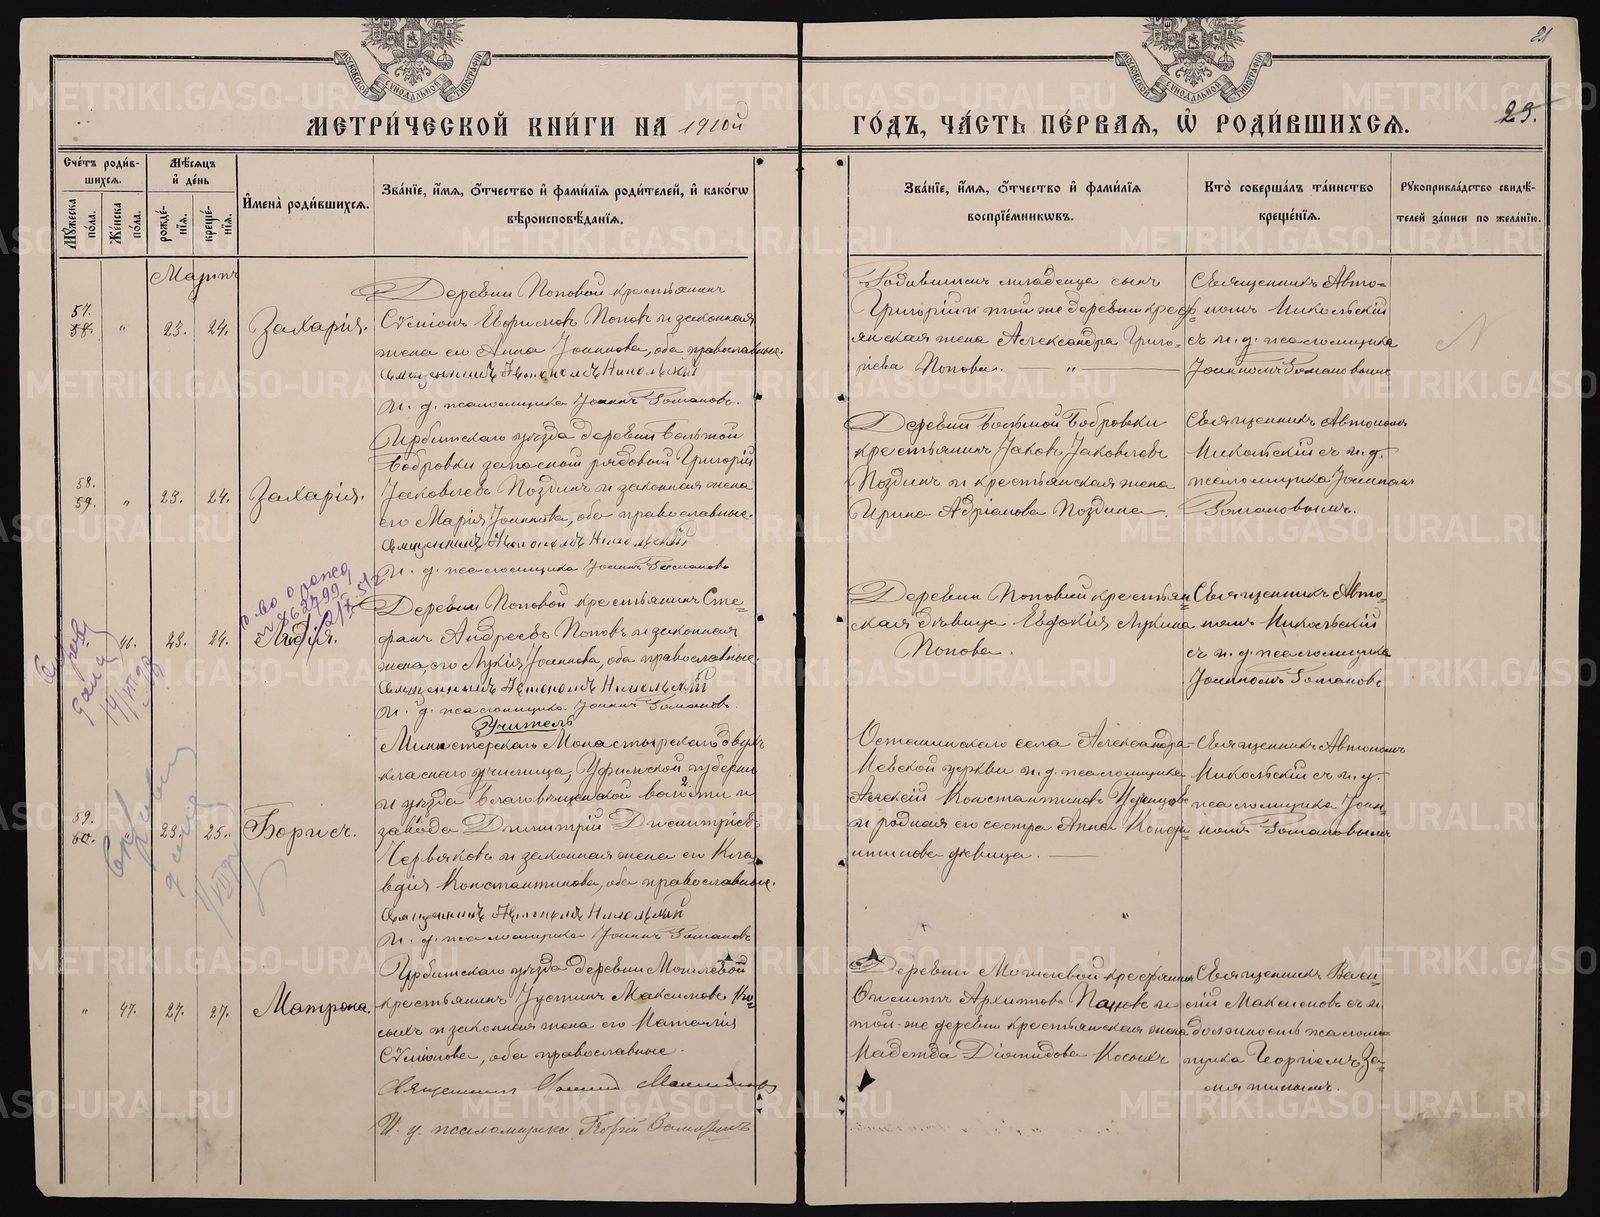 21
МОСКОВСКОЙ СѴНОДАЛЬНОЙ ТИПОГРАФІИ
МОСКОВСКОЙ СѴНОДАЛЬНОЙ ТИПОГРАФІИ
МЕТРИ́ЧЕСКОЙ КНИ́ГИ НА 1910й
ГО́ДЪ, ЧА́СТЬ ПЕ́РВАЯ, Ѡ РОДИ́ВШИХСѦ.
25.
Сче́тъ роди́в-
шихсѧ.
Мѣ́сѧцъ
и҆ де́нь
Мꙋ́жеска по́ла.
Же́нска по́ла.
рожде́-нїѧ.
креще́-нїѧ.
И҆мена̀ роди́вшихсѧ.
Зва́нїе, и҆́мѧ, ѻ҆́тчество и҆ фами́лїѧ роди́телей, и҆ како́гѡ
вѣроисповѣ́данїѧ.
Зва́нїе, и҆́мѧ, ѻ҆́тчество и҆ фами́лїѧ
воспрїе́мникѡвъ.
Кто̀ соверша́лъ та́инство
креще́нїѧ.
Рꙋкоприкла́дство свидѣ́-
телей за́писи по жела́нїю.
Мартъ
57.
58.
"
23.
24.
Захарія.
Деревни Поповой крестьянинъ
Сѵмеонъ Ефимовъ Поповъ и законная
жена его Анна Іоаннова, оба православные.
Священникъ Автономъ Никольскій
И. д. псаломщика Іоаннъ Романовъ.
Родившагося младенца сынъ
Григорій и той же деревни крестья-
янская жена Александра Григо-
ріева Попова. — " —
Священникъ Авто-
номъ Никольскій
съ и. д. псаломщика
Іоанномъ Романовымъ
58.
59.
"
23.
24.
Захарія.
Ирбитскаго уѣзда деревни Большой
Бобровки запасной рядовой Григорій
Іаковлевъ Поздинъ и законная жена
его Марія Іоаннова, оба православные.
Священникъ Автономъ Никольскій
И. д. псаломщика Іоаннъ Романовъ
Деревни Большой Бобровки
крестьянинъ Іаковъ Іаковлевъ
Поздинъ и крестьянская жена
Ирина Адріанова Поздина.
Священникъ Автономъ
Никольскій съ и. д.
псаломщика Іоанномъ
Романовымъ.
46.
23.
24.
Лидія.
Деревни Поповой крестьянинъ Сте-
фанъ Андреевъ Поповъ и законная
жена его Лукія Іоаннова, оба православные.
Священникъ Автономъ Никольскій
И. д. псаломщика Іоаннъ Романовъ.
Деревни Поповой крестьян-
ская дѣвица Евдокія Лукина
Попова.
Священникъ Авто-
номъ Никольскій
съ и. д. псаломщика
Іоанномъ Романовъ
59.
60.
23.
25.
Борисъ.
Учитель
Министерскаго Монастырскаго двухъ
класнаго училища, Уфимской губерніи
и уѣзда Благовѣщенской волости и
завода Димитрій Димитріевъ
Червяковъ и законная жена его Кла-
вдія Константинова, оба православные.
Священникъ Автономъ Никольскій
И. д. псаломщика Іоаннъ Романовъ
Осташинскаго села Александро-
Невской церкви и. д. псаломщика
Алексій Константиновъ
и родная его сестра Анна Конста-
нтинова дѣвица. —
Священникъ Автономъ
Никольскій съ и. д.
псаломщика Іоан-
номъ Романовымъ
"
47.
27.
27.
Матрона.
Ирбитскаго уѣзда деревни Могилевой
крестьянинъ Іустинъ Максимовъ Ко-
сыхъ и законная жена его Наталія
Сѵмеонова, оба православные.
Священникъ Василій Максимовъ
И. д. псаломщика Георгій
Деревни Могилевой крестьянинъ
Архиповъ Пановъ и
той-же деревни крестьянская жена
Надежда Діомидова Косыхъ
Священникъ Васи-
лій Максимовъ съ и.
должность псалом-
щика Георгіемъ
METRIKI.GASO-URAL.RU